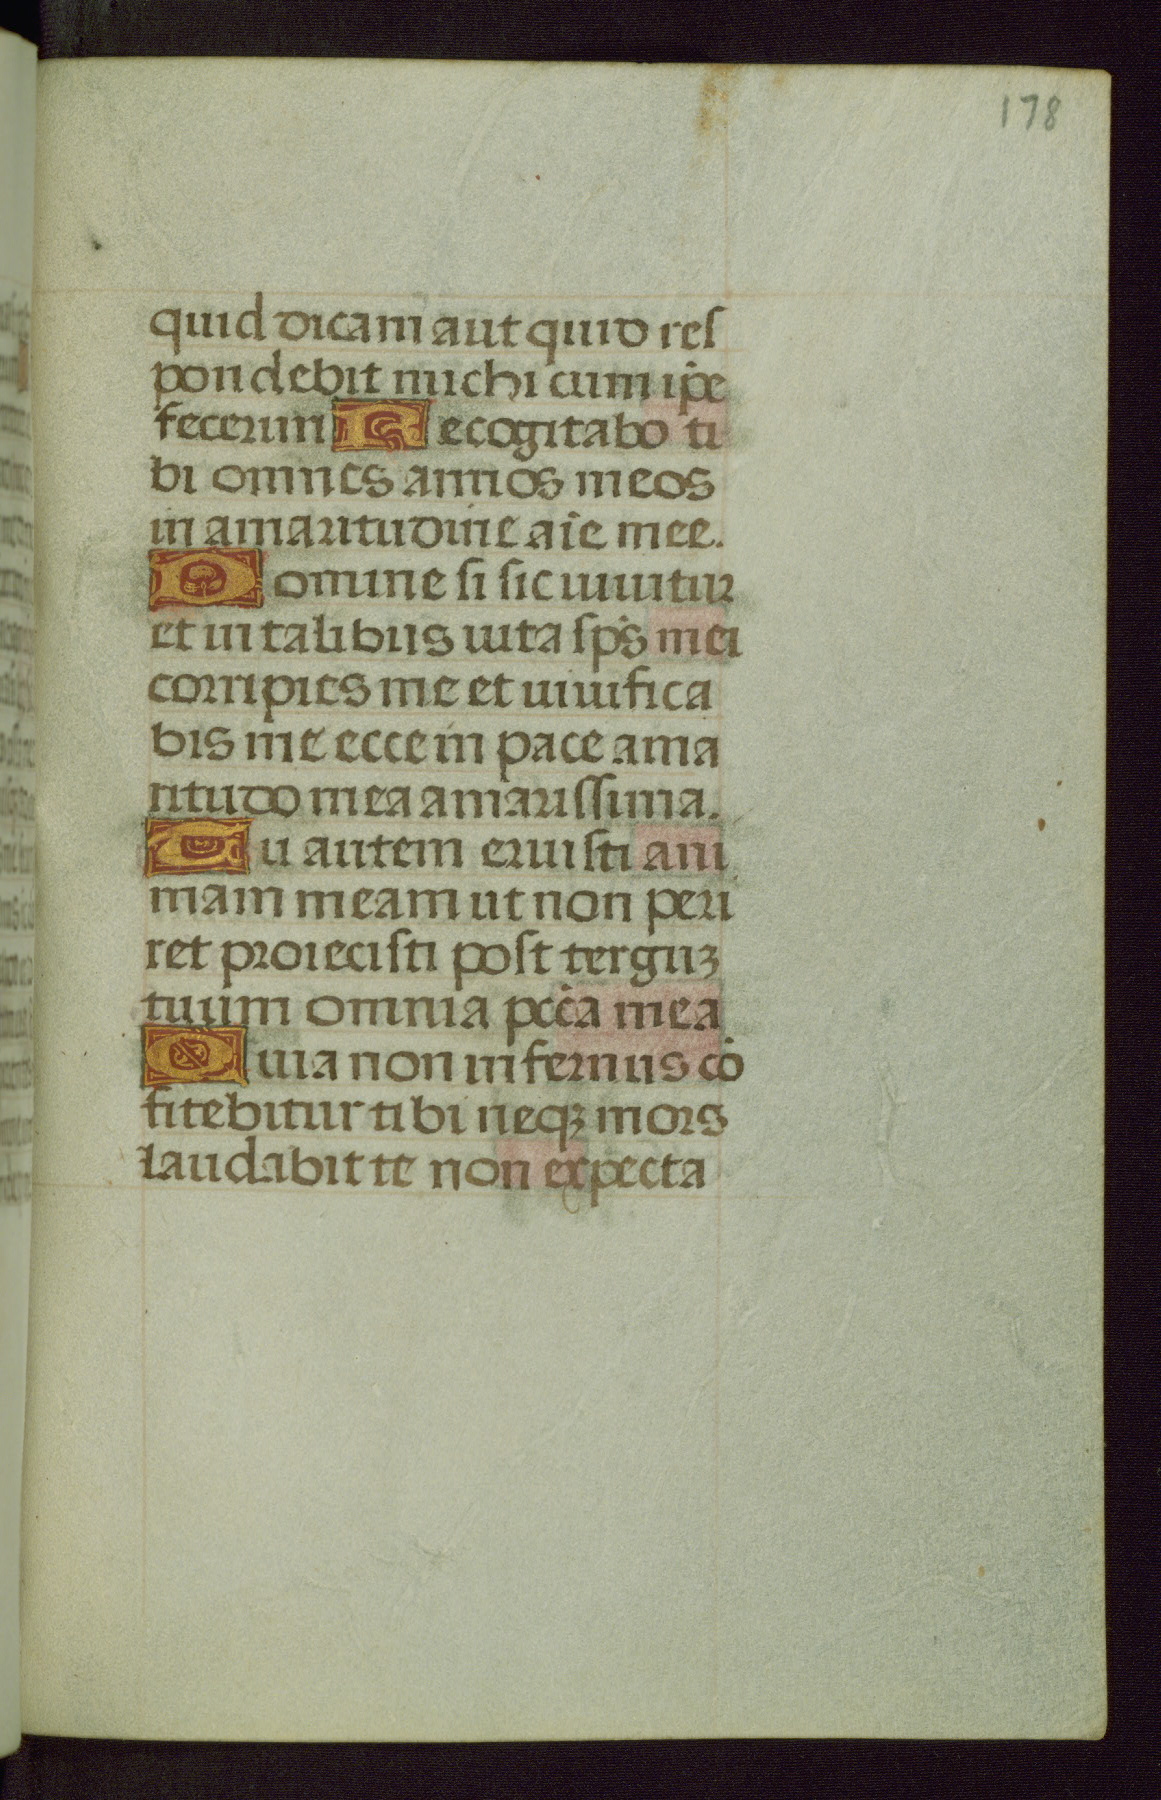 178
quid dicam aut quid reſ
pondebit michi cum ip̄e
fecerim Recogitabo ti
bi omnes annos meos
in amaritudine aīe mee.
Domine ſi ſic uiuitur
et in talibus uita ſp̄s mei
corripies me et uiuifica
bis me ecce in pace ama
ritudo mea amariſſima.
Tu autem eruiſti ani
mam meam ut non peri
ret proieciſti poſt terguꝫ
tuum omnia pcc̄a mea
Quia non infernus cō
fitebitur tibi neqꝫ mors
laudabit te non expecta